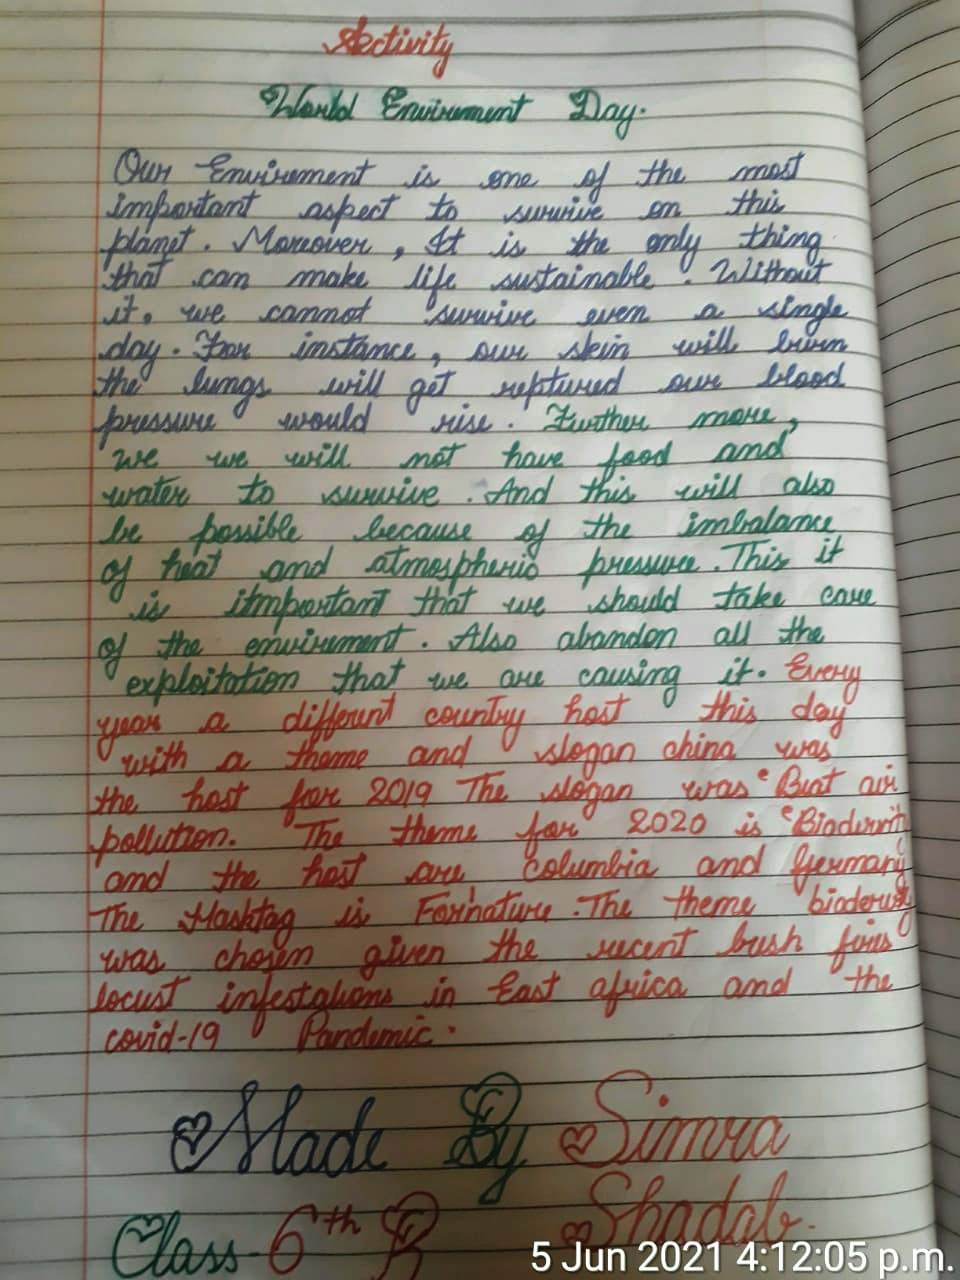 Activity
World Envirement Day.
Our Envirement is one of the most
important aspect to survive on this
planet. Moreover, It is the only thing
that can make life sustainable. Without
it, we cannot survive even a single
day. For instance, our skin will burn
the lungs will get reptured our blood
pressure would rise. Further more,
we we will not have food and
water to survive. And this will also
be possible because of the imbalance
of heat and atmospheric pressure. This it
is itmportant that we should take care
of the envirement. Also abandon all the
exploitation that we are causing it. Every
year a different country host this day
with a theme and slogan china was
the host for 2019 The slogan was "Beat air
pollution. The theme for 2020 is "
and the host are, Columbia and Germany
The Hashtag is For'nature. The theme
was chosen given the recent bush fires
locust infestations in East africa and the
covid-19 Pandemic.
Made By Simra
Shadab.
Class-6th B
5 Jun 2021 4:12:05 p.m.